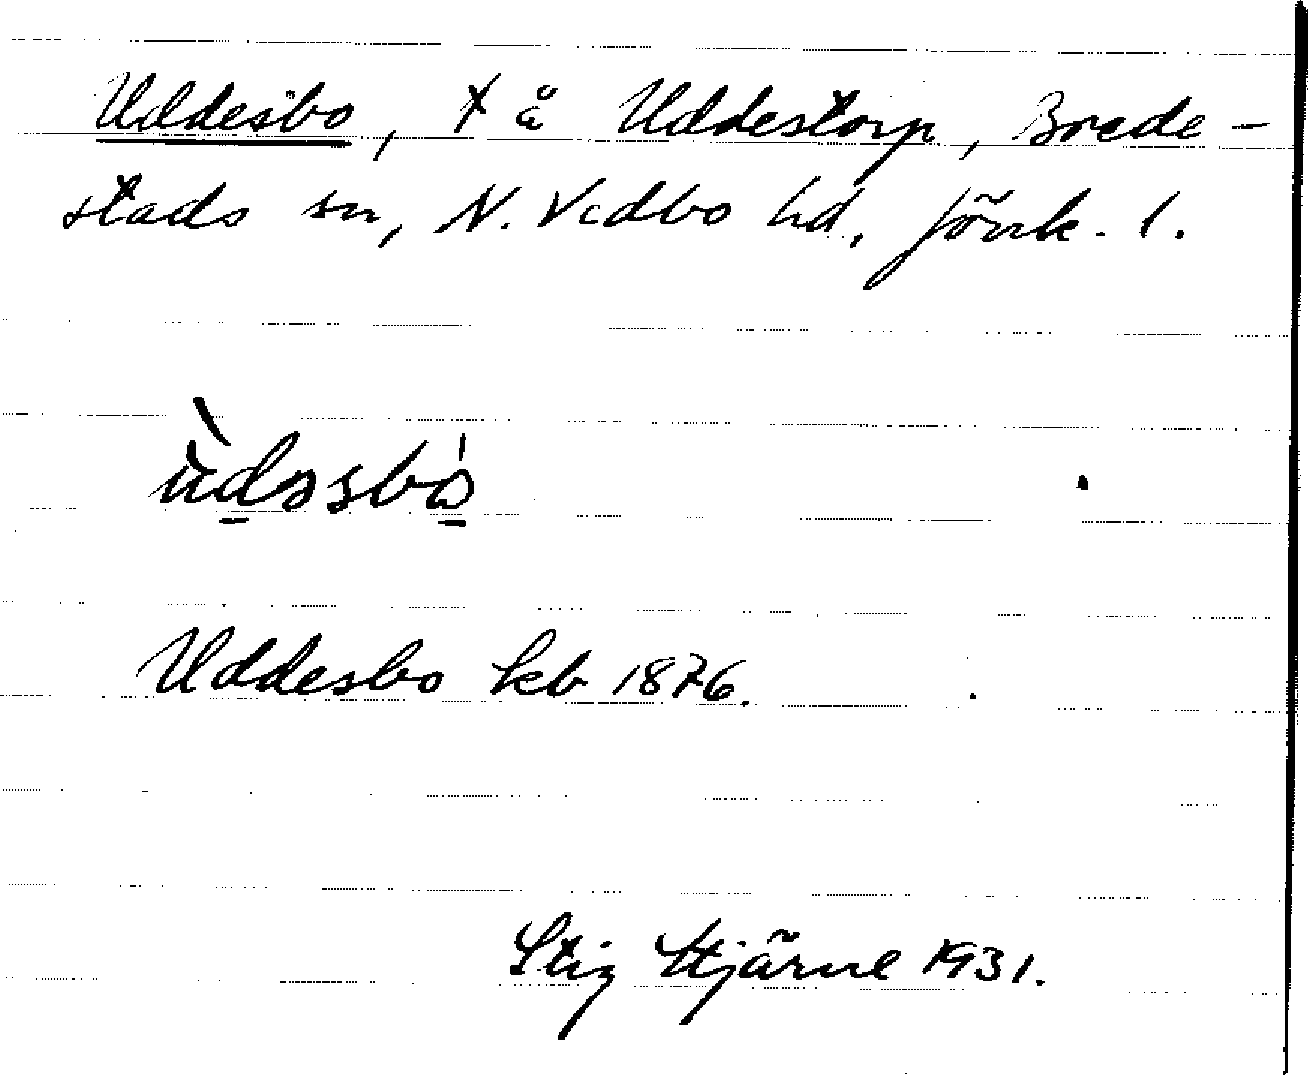 Uddesbo, t å Uddestorp, Brede-
stads sn, N. Vedbo hd, Jönk. l.
Uddesbo kb 1876.
Stig Stjärne 1931.